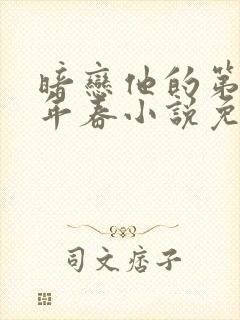 暗戀他的第
年春小說免
司文痞子